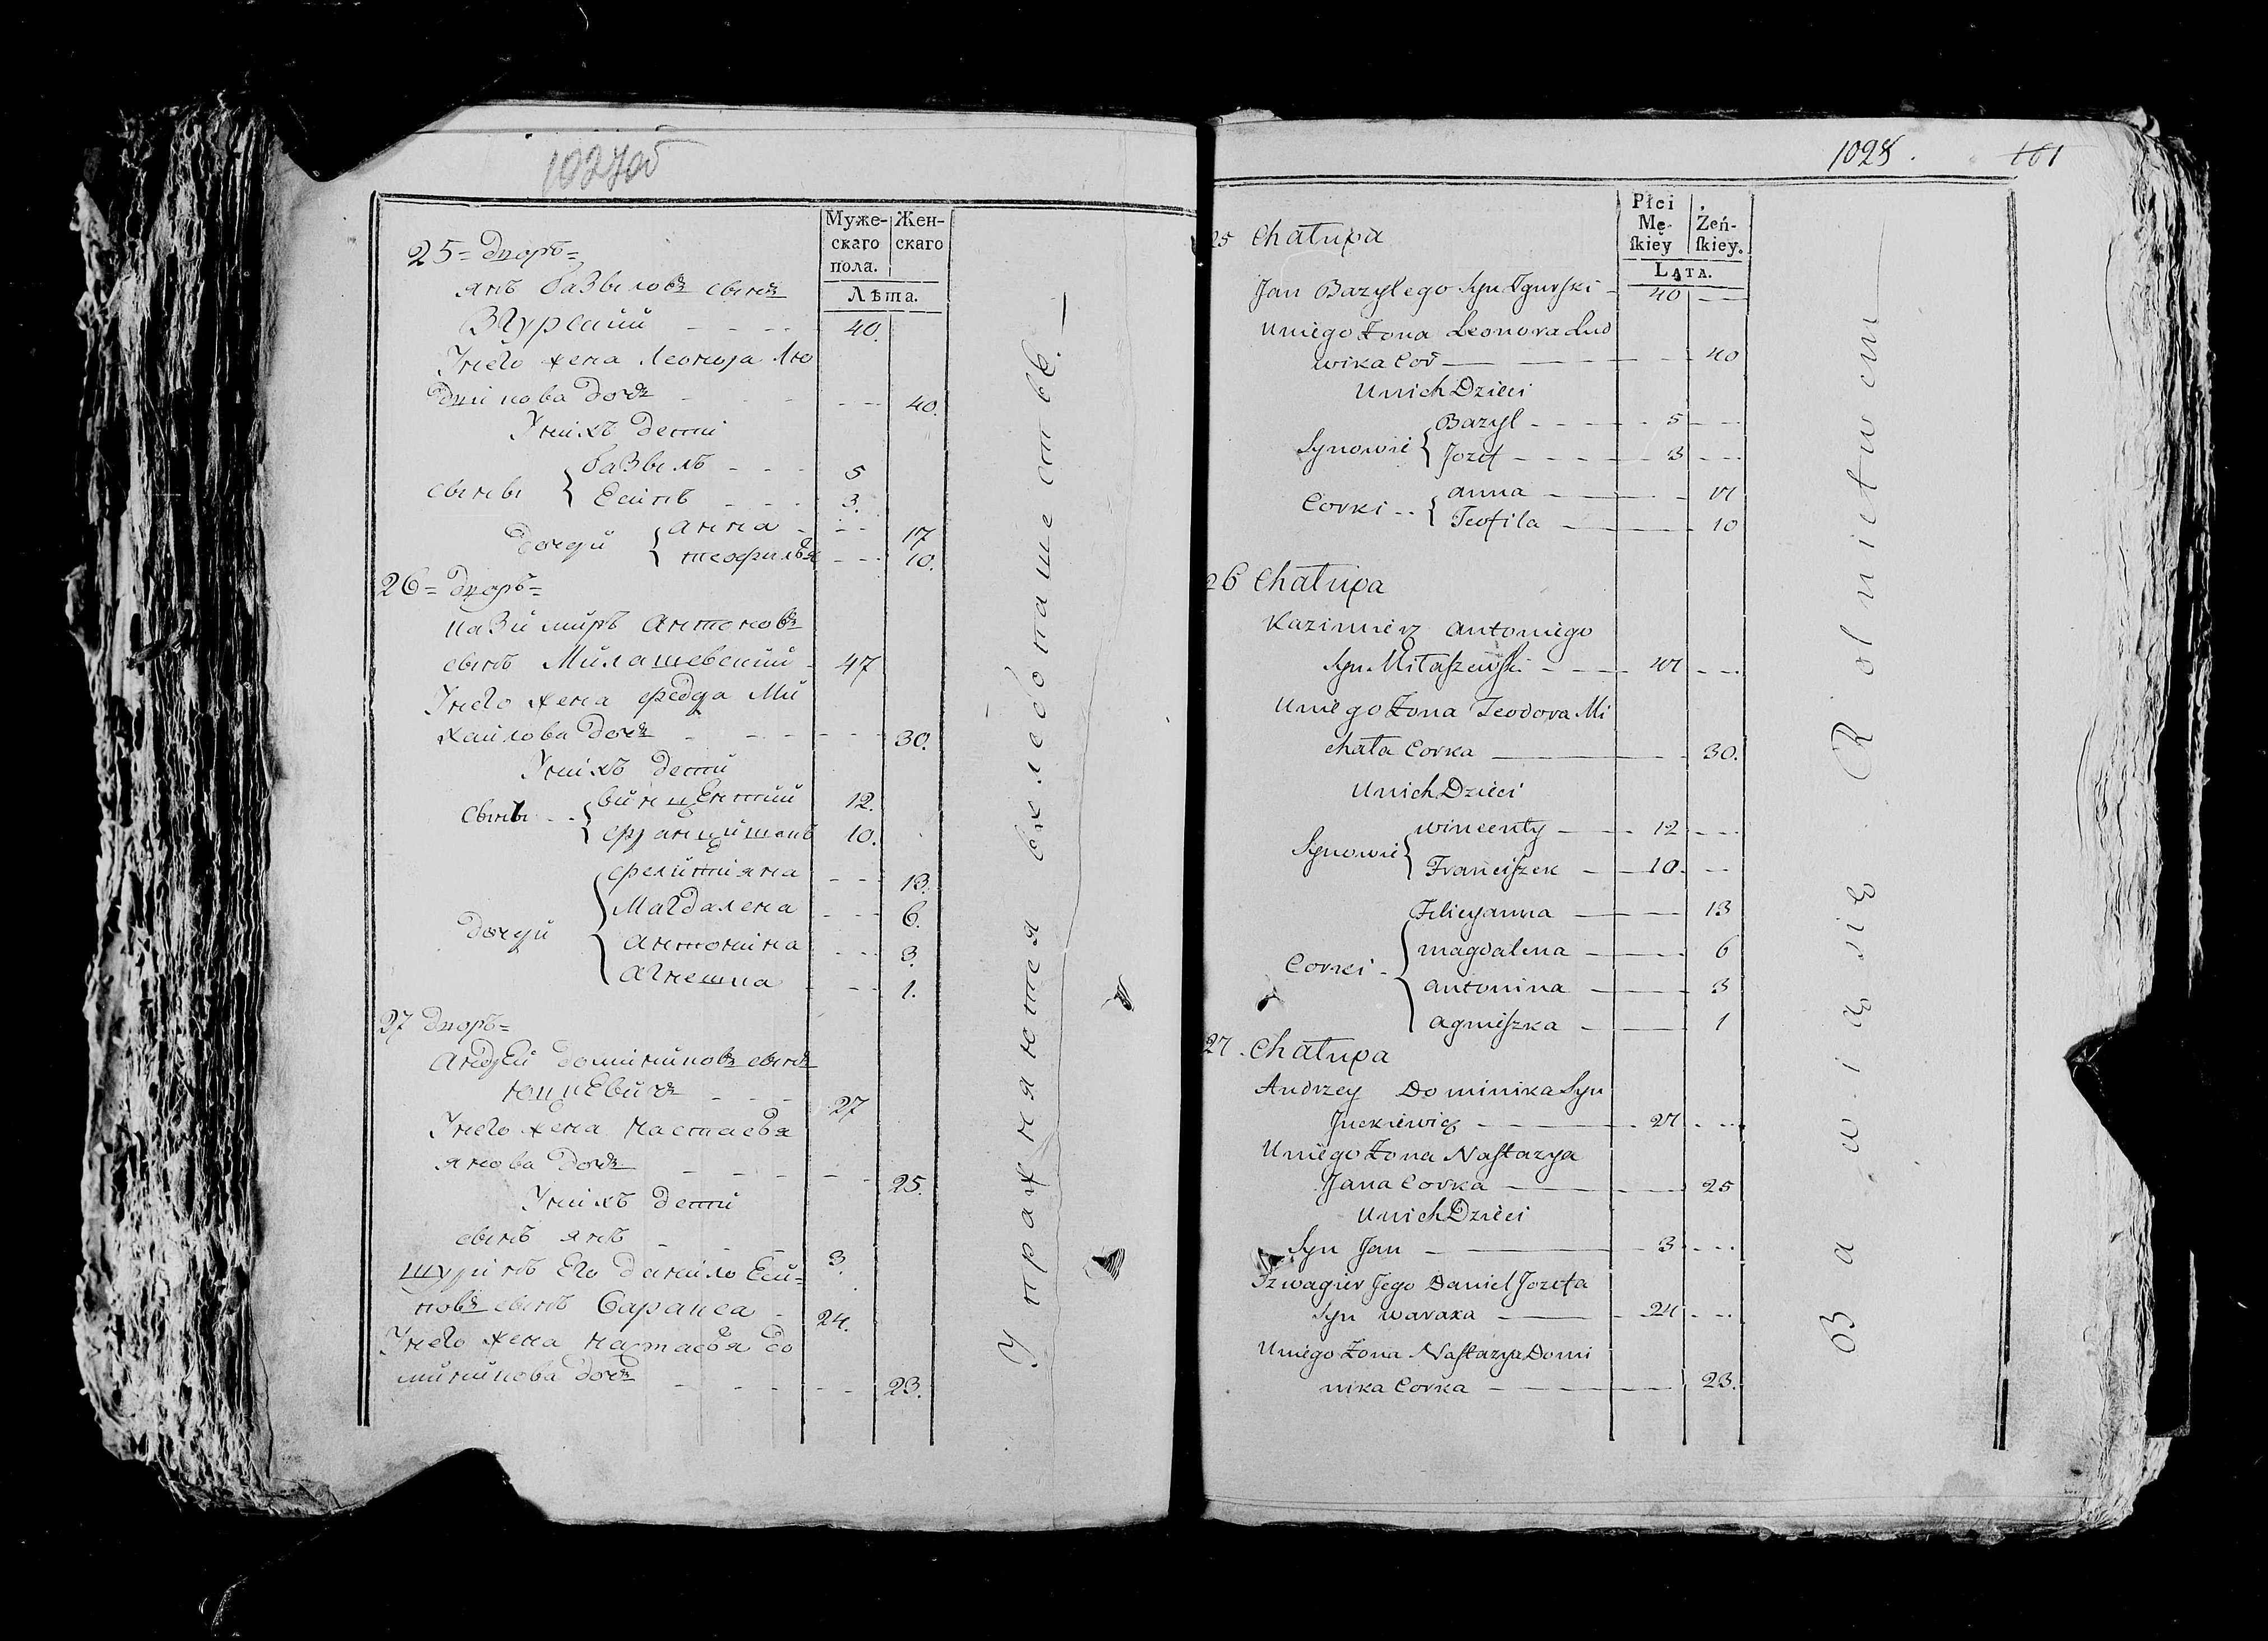 1027об
Муже-
скаго
пола.
Жен-
скаго
Лѣта.
25 = Дворъ =
Янъ базылювъ сынъ
Згурский - - - 40.
У него жена Леонора Лю
двикова дочь - - - 40.
У нихъ дети
сыны { базыль - - - 5
Есипъ - - - 3.
дочери { анна - - - 17
теофилья - - - 10.
26 = Дворъ =
казимиръ антоновъ
сынъ Милашевский - 47
У него жена федора Ми
хайлова дочь - - - 30.
У нихъ дети
сыны - - { винцентий 12.
францишекъ 10.
дочери { фелицияна - - - 13.
Магдалена - - - 6.
антонина - - - 3.
агнешка - - - 1.
27 Дворъ =
андрей доминиковъ сынъ
юцкевичъ - - - 27
У него жена настасья
янова дочь - - - 25.
У нихъ дети
сынъ янъ - - - 3.
шуринъ Его данило Еси-
повъ сынъ Варакса - 24.
У него жена настасья до
миникова дочь - - - 23.
Упражняются в хлебопашестве. —
1028.
101
Płci
Mę-
ſkiey
Żeń-
ſkiey.
Lata.
25 Chałupa
Jan Bazylego Syn Zgurski - 40 - -
U niego Żona Leonora Lud
wika Cor — — 40
U nich Dzieci
Synowie { Bazyl - - - 5 - - -
Jozef - - - 3 - - -
Corki - - { anna - — - 17
Teofila — - 10
26 Chałupa
Kazimierz antoniego
Syn Miłaszewski - - - 47 - - -
U niego Żona Teodora Mi
chała Corka — 30.
U nich Dzieci
Synowie { wincenty — - 12 - - -
Franciszek - — 10. - -
Corki - { Felicyanna — 13
magdalena - — 6
antonina — 3
agnieszka - — 1
27. Chałupa
Andrzey Dominika Syn
Juckiewicz - — 27 - - -
U niego Żona Nastazya
Jana Corka — 25
U nich Dzieci
Syn Jan - — 3 - - -
Szwagier Jego Daniel Jozefa
Syn waraxa — - 24 - - -
U niego Żona Nastazya Domi
nika Corka - — 23.
Bawią się Rolnictwem —